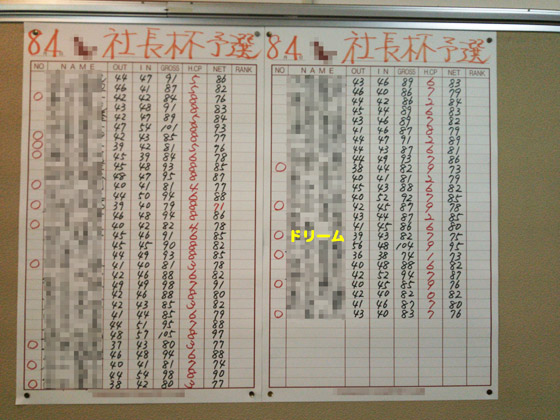 8.4. 社長杯予選
NO NAME OUT IN GROSS H.CP NET RANK
44 47 91 5 86
46 41 87 5 82
42 42 84 8 76
43 48 91 8 83
42 47 89 5 84
47 54 101 8 93
42 43 85 8 77
39 42 81 5 76
45 39 84 6 78
45 48 93 8 85
48 47 95 8 87
40 41 81 4 77
44 50 94 6 88
39 40 79 8 71
46 48 94 8 86
40 42 82 4 78
45 46 91 6 85
45 45 90 8 82
44 49 93 8 85
41 40 81 3 78
42 46 88 6 82
49 49 98 7 91
42 46 88 8 80
42 43 85 3 82
41 44 85 6 79
44 51 95 7 88
48 57 105 8 97
37 43 80 3 77
46 48 94 6 88
40 41 81 7 74
44 54 98 8 90
38 42 80 3 77
8.4. 社長杯予選
NO NAME OUT IN GROSS H.CP NET RANK
43 46 89 6 83
46 40 86 7 79
44 42 86 2 84
45 44 89 6 83
43 46 89 7 82
41 46 87 8 79
44 47 91 2 89
44 43 87 6 81
44 49 93 7 86
38 44 82 9 73
40 41 81 2 79
45 43 88 6 82
40 52 92 7 85
42 45 87 9 78
43 44 87 2 85
41 45 86 6 80
ドリーム 39 43 82 7 75
56 48 104 9 95
36 38 74 1 73
40 48 88 6 82
42 52 94 7 87
40 45 85 9 76
42 40 82 0 82
41 46 87 7 80
43 40 83 7 76